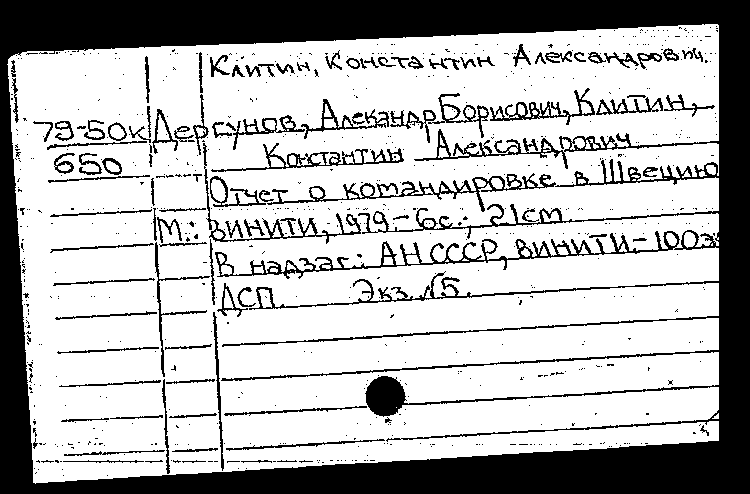 Клитин, Константин Александрович.
79-50к Дергунов, Алекандр Борисович, Клитин,
650 Константин Александрович
Отчет о командировке в Швецию
М.: ВИНИТИ, 1979.- 6с.; 21cm.
В надзаг.: АН СССР, ВИНИТИ.- 100э
ДСП. Экз. №5.